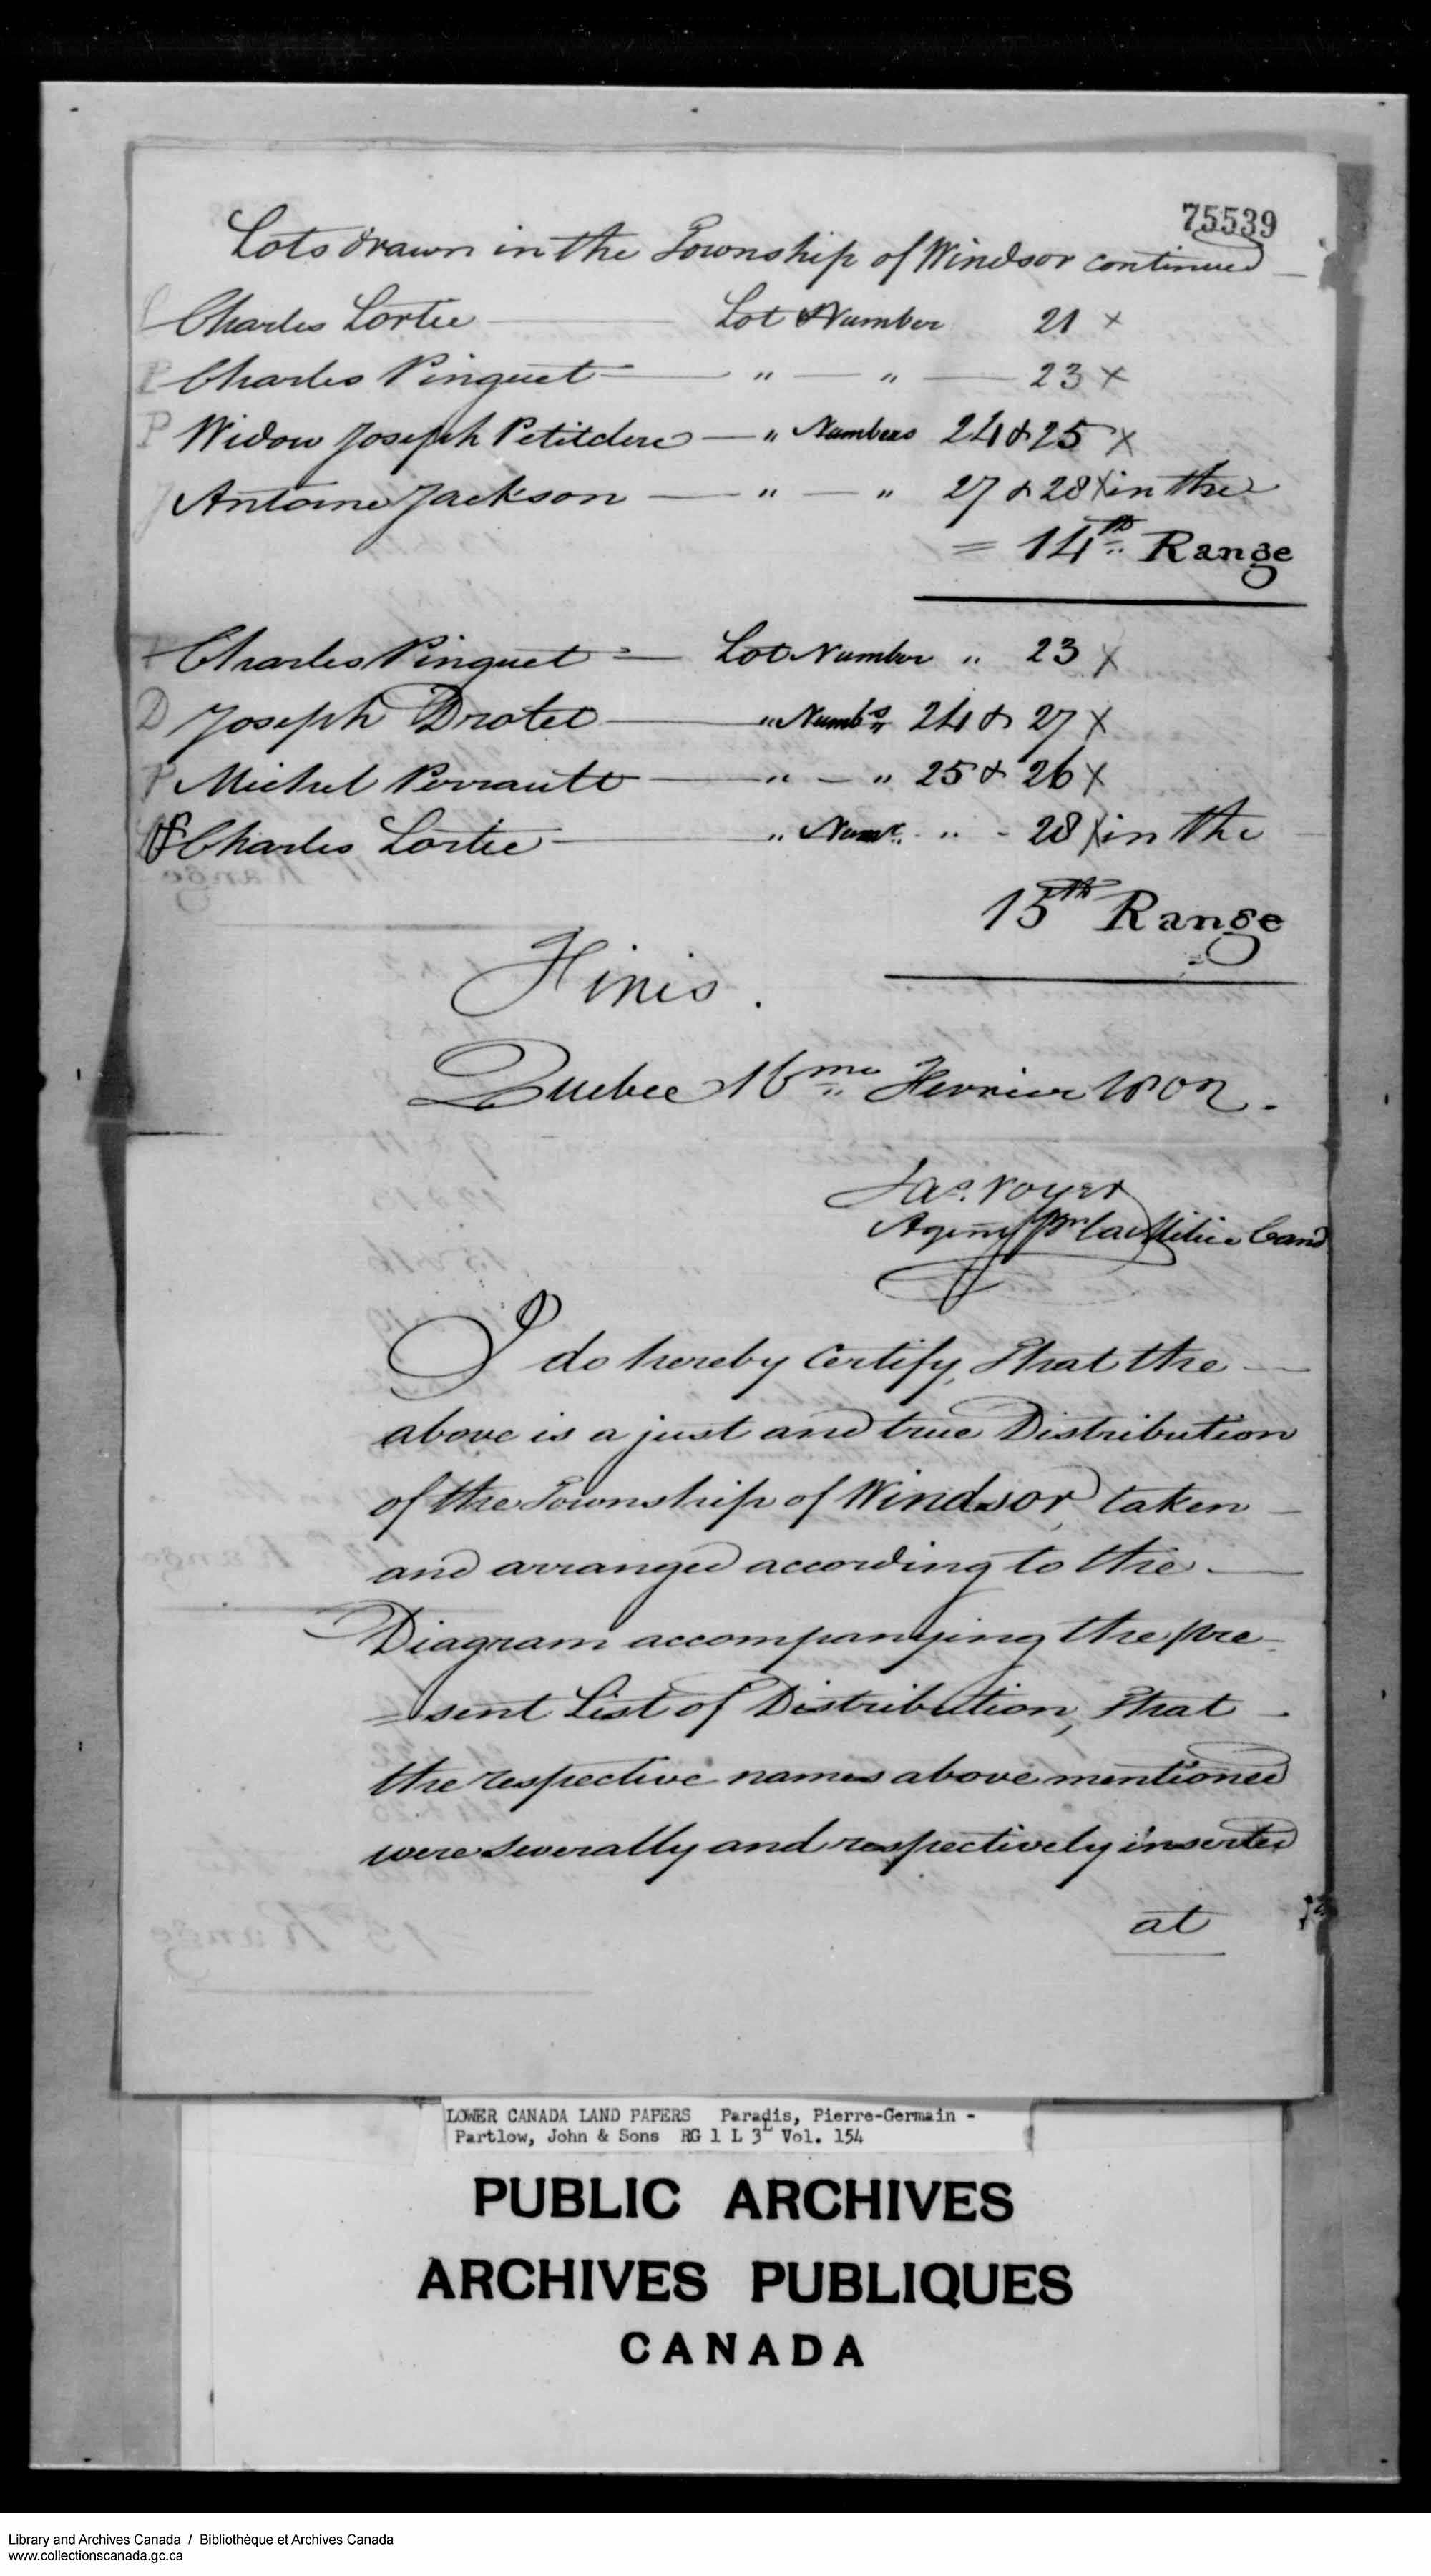 75539
Lots drawn in the Township of Windsor continued
Charles Lortie — Lot Number 21 x
P Charles Pinguet — " — " — 23 x
P Widow Joseph Petitclere — " Numbers 24 & 25 x
J Antoine Jackson — " — " 27 & 28 x in the
= 14th Range
Charles Pinguet = — Lot Number " 23 x
D Joseph Drolet — " Numbs 24 & 27 x
P Michel Perrault — " — " 25 & 26 x
Charles Lortie — " Numr. " - 28 x in the
15th Range
Finis.
Quebec 16me Fevrier 1802.
Jas. Voyer
Agent Milice Cand
I do hereby Certify, That the —
above is a just and true Distribution
of the Township of Windsor, taken —
and arranged according to the —
Diagram accompanying the pre-
=sent List of Distribution, That —
the respective names above mentioned
were severally and respectively inserted
at
LOWER CANADA LAND PAPERS Paradis, Pierre-Germain -
Partlow, John & Sons RG 1 L 3L Vol. 154
PUBLIC ARCHIVES
ARCHIVES PUBLIQUES
CANADA
Library and Archives Canada / Bibliothèque et Archives Canada
www.collectionscanada.gc.ca